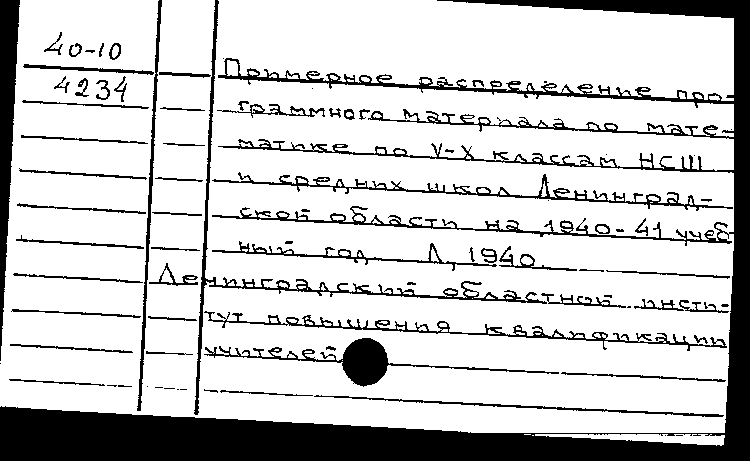 40-10
4234
Примерное распределение про-
граммного материала по мате-
матике по V-X классам НСШ
и средних школ Ленинград-
ской области на 1940-41 учеб
ный год Л, 1940.
Ленинградский областной инсти-
тут повышения квалификации
учителей